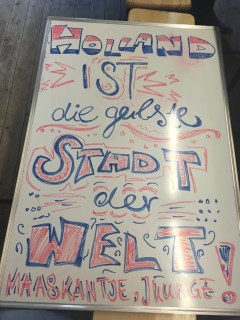 HOLLAND
IST
die geilste
STADT
der
WELT!
MAASKANTJE, JUNGE